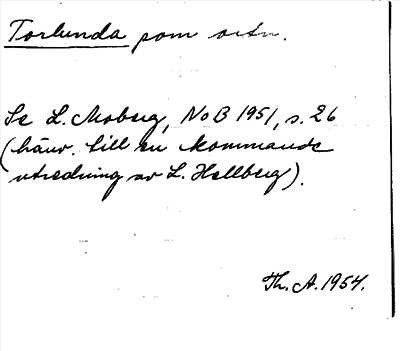 Torlunda som ortn.
Se L. Moberg, NoB 1951, s. 26
(hänv. till en kommande
utredning av L. Hellberg).
Th. A. 1954.